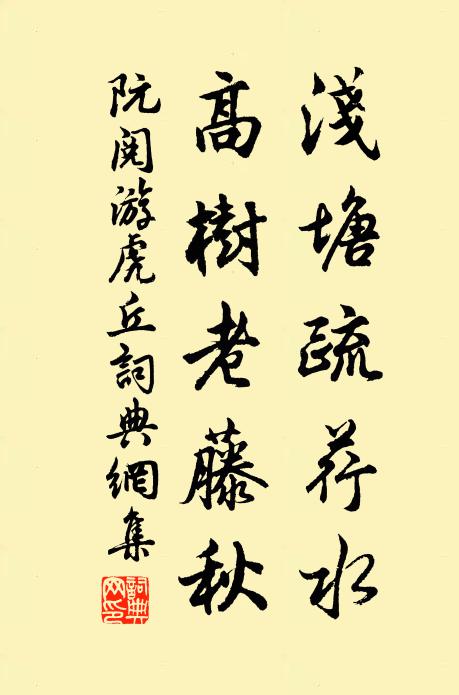 淺塘疏荇水
高樹老藤秋
阮閱游虎丘詞典網集
詞典网印